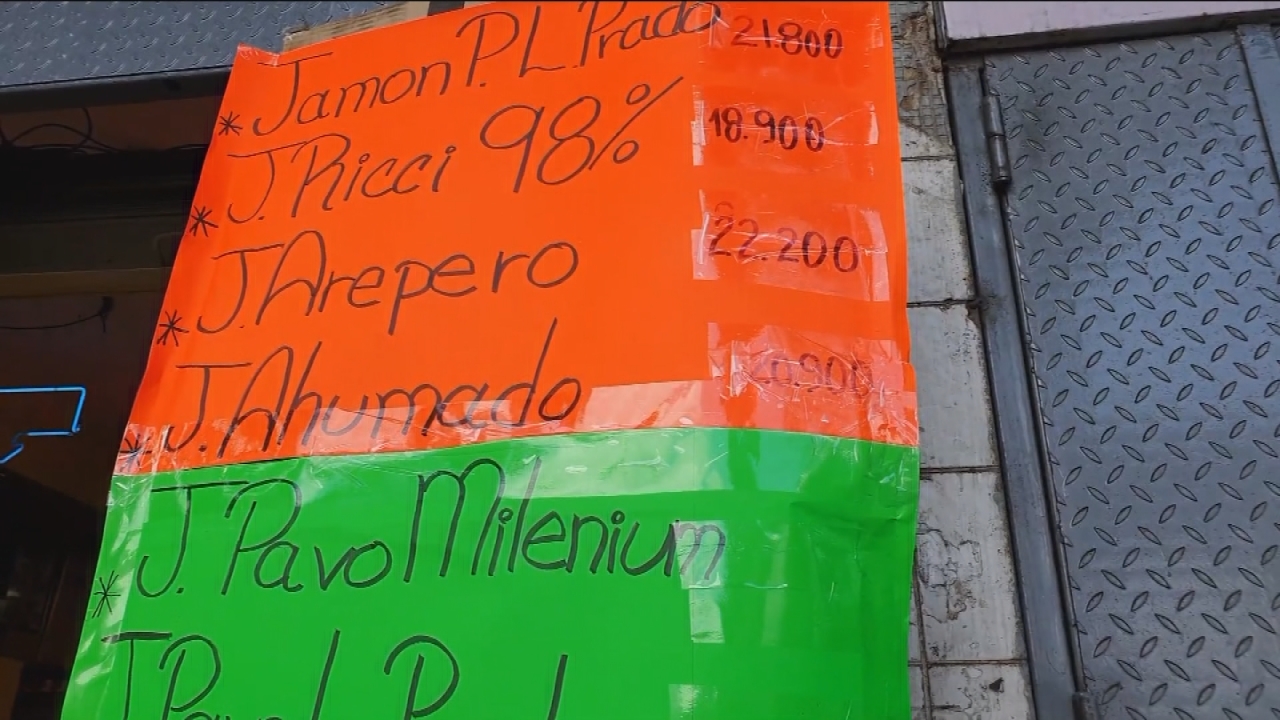 * Jamon P.L. Prado 21.800
* J. Ricci 98% 18.900
* J. Arepero 22.200
* J. Ahumado 20.900
* J. Pavo Milenium